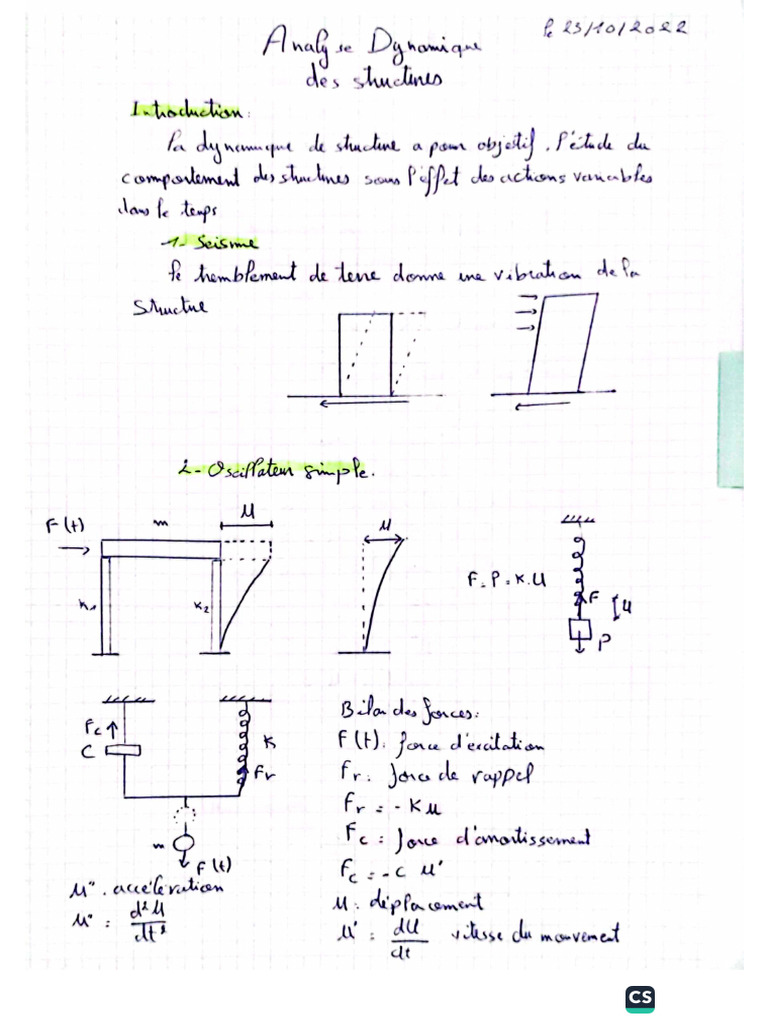 le 23/10/2022
Analyse Dynamique
des structures
Introduction:
La dynamique de structure a pour objectif. l'étude du
comportement des structures sous l'effet des actions variables
dans le temps
1- Seisme
le tremblement de terre donne une vibration de la
structure
2- Oscillateur simple.
F(t)
m
u
K1
K2
u
F = P = K.U
F
u
P
Fc
C
K
Fr
m
F(t)
u'' : accélération
u'' : d²u/dt²
Bilan des forces:
F(t): force d'excitation
Fr: force de rappel
Fr = - K u
Fc : force d'amortissement
Fc = - C u'
u : déplacement
u' : dU/dt vitesse du mouvement
CS